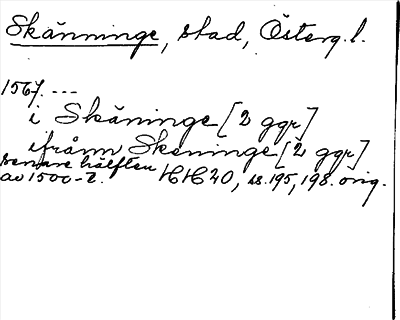 Skänninge, stad, Österg.l.
1567. ---
i Skäninge [2 ggr]
ifrånn Skeninge [2 ggr]
senare hälften
av 1500-t. HH 20, s. 195, 198. orig.